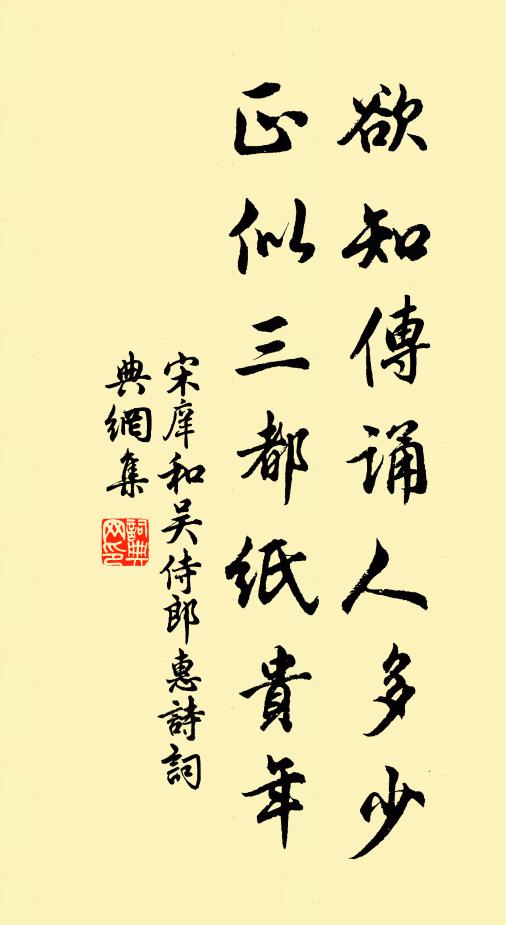 欲知傳誦人多少
正似三都紙貴年
宋庠和吴侍郎惠詩詞
典網集
詞典
网印